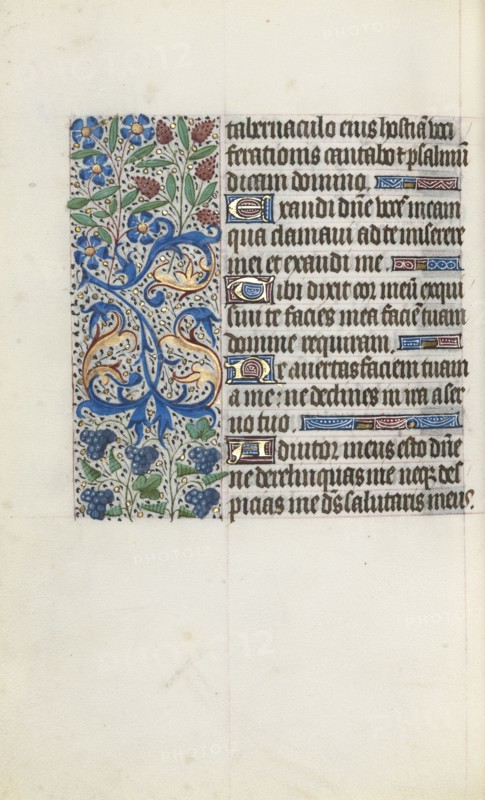 tabernaculo eius hostiā voci
ferationis cantabo ⁊ psalmū
dicam domino.
Exaudi dn̄e vocē meam
qua clamavi ad te miserere
mei et exaudi me.
Tibi dixit cor meū exqui
sivit te facies mea faciē tuam
domine requiram.
Ne avertas faciem tuam
a me: ne declines in ira a ser
vo tuo.
Adiutor meus esto dn̄e
ne derelinquas me neqȝ des
picias me ds̄ salutaris meus.
PHOTO12